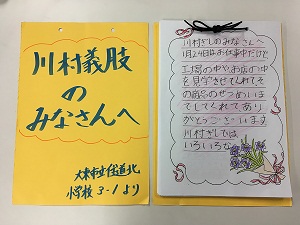 川村義肢
の
みなさんへ
大東市立住道北
小学校 3-1より
川村ぎしのみなさんへ
1月24日はお仕事中だけど
工場の中やお店の中
を見学させてくれてそ
の部品のせつめいま
でしてくれてあり
がとうございます
川村ぎしでは
いろいろな